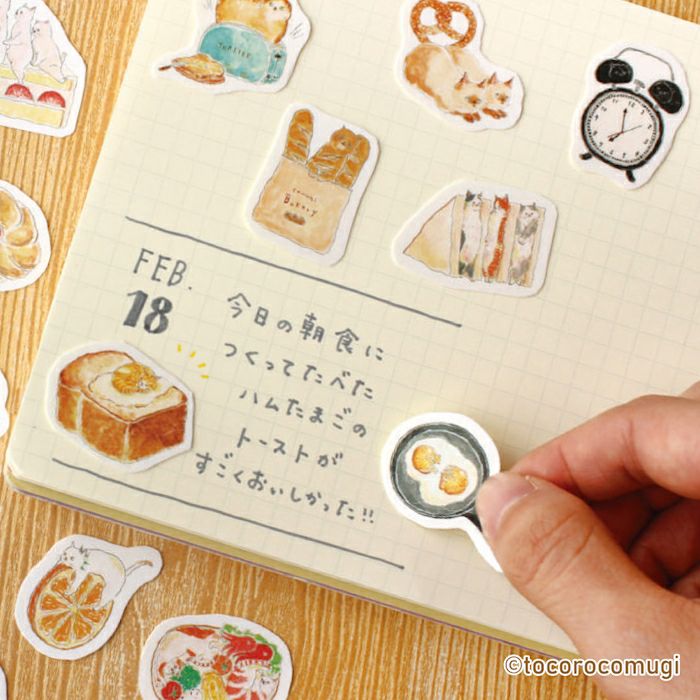 TOASTER
Bakery
FEB.
18
今日の朝食に
つくってたべた
ハムたまごの
トーストが
すごくおいしかった!!
©tocorocomugi